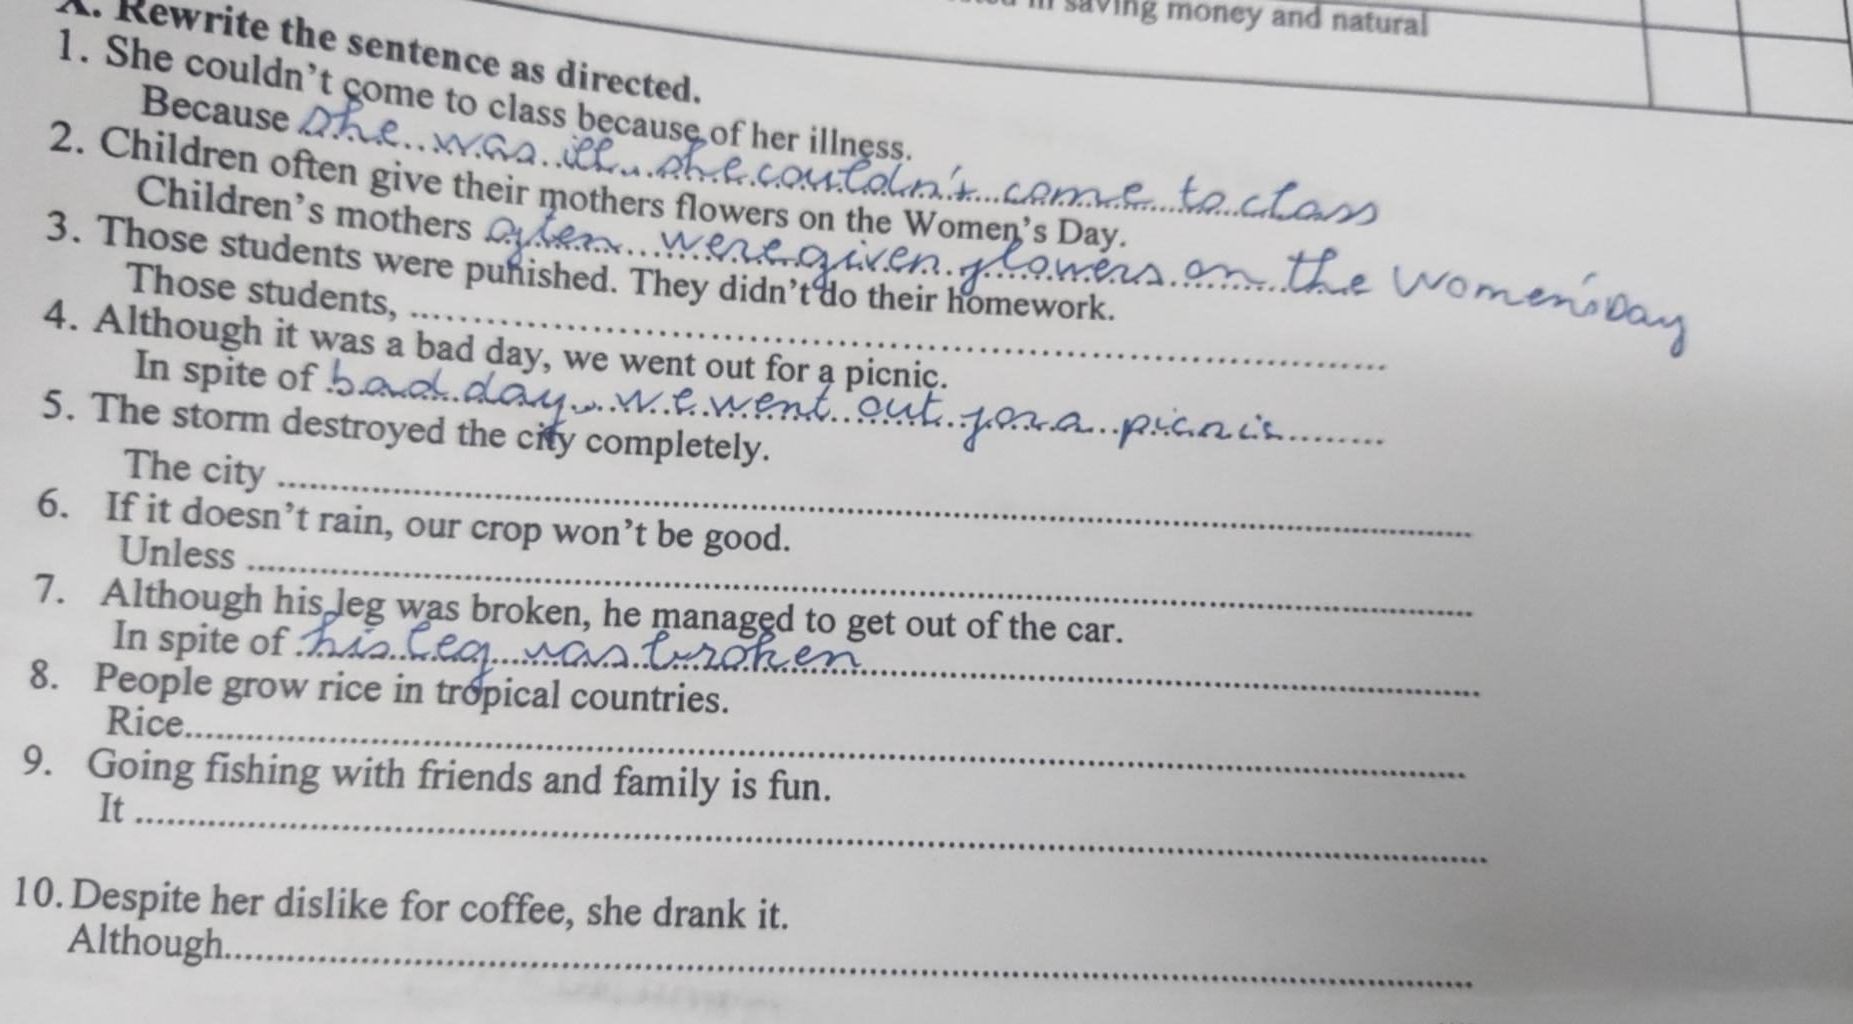 in saving money and natural
X. Rewrite the sentence as directed.
1. She couldn't come to class because of her illness.
Because she was ill, she couldn't come to class
2. Children often give their mothers flowers on the Women's Day.
Children's mothers often were given flowers on the Women's Day
3. Those students were punished. They didn't do their homework.
Those students, ..........
4. Although it was a bad day, we went out for a picnic.
In spite of bad day, we went out for a picnic
5. The storm destroyed the city completely.
The city ..........
6. If it doesn't rain, our crop won't be good.
Unless ..........
7. Although his leg was broken, he managed to get out of the car.
In spite of his leg was broken
8. People grow rice in tropical countries.
Rice..........
9. Going fishing with friends and family is fun.
It ..........
10. Despite her dislike for coffee, she drank it.
Although..........